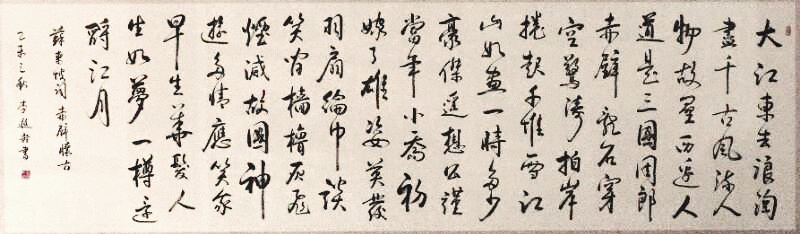 大江東去浪淘
盡千古風流人
物故壘西邊人
道是三國周郎
赤壁亂石穿
空驚濤拍岸
捲起千堆雪江
山如畫一時多少
豪傑遙想公瑾
當年小喬初
嫁了雄姿英發
羽扇綸巾談
笑間檣櫓灰飛
煙滅故國神
遊多情應笑我
早生華髮人
生如夢一樽還
酹江月
蘇東坡詞 赤壁懷古
乙未之秋 李 書